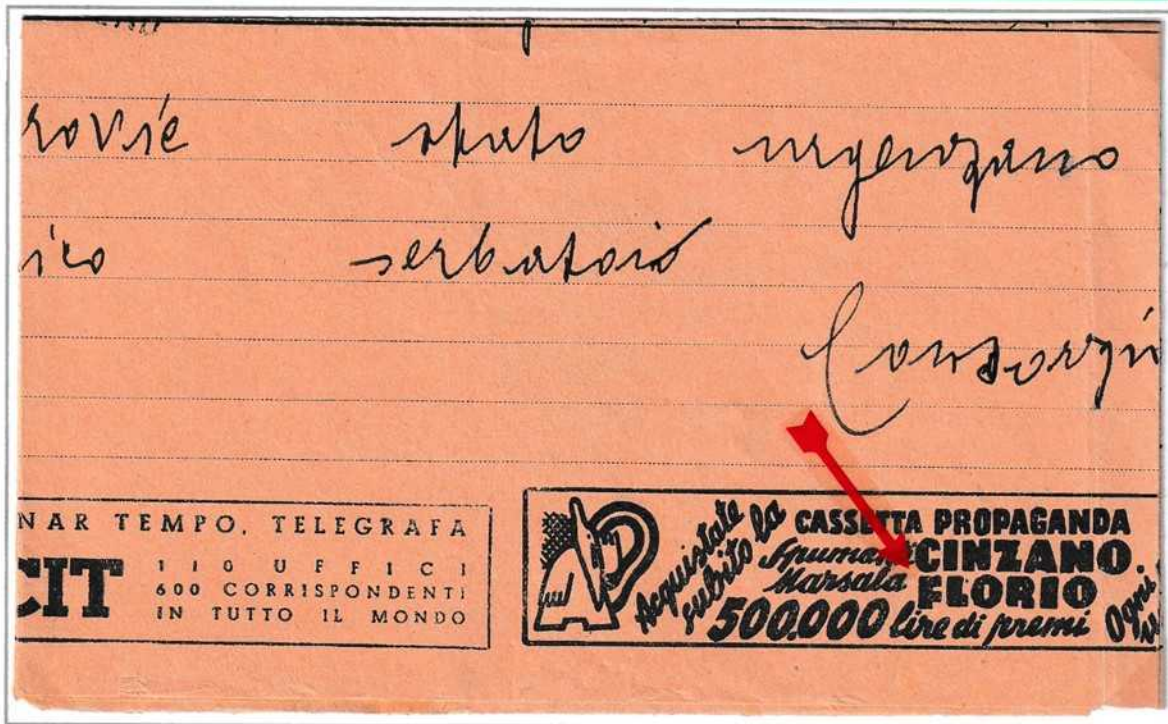 rovie stato urgenzano
ico serbatoio
Consorzi
NAR TEMPO, TELEGRAFA
CIT
110 UFFICI
600 CORRISPONDENTI
IN TUTTO IL MONDO
Acquistate
subito la
CASSETTA PROPAGANDA
Spumanti CINZANO.
Marsala FLORIO
500.000 lire di premi
Ogni